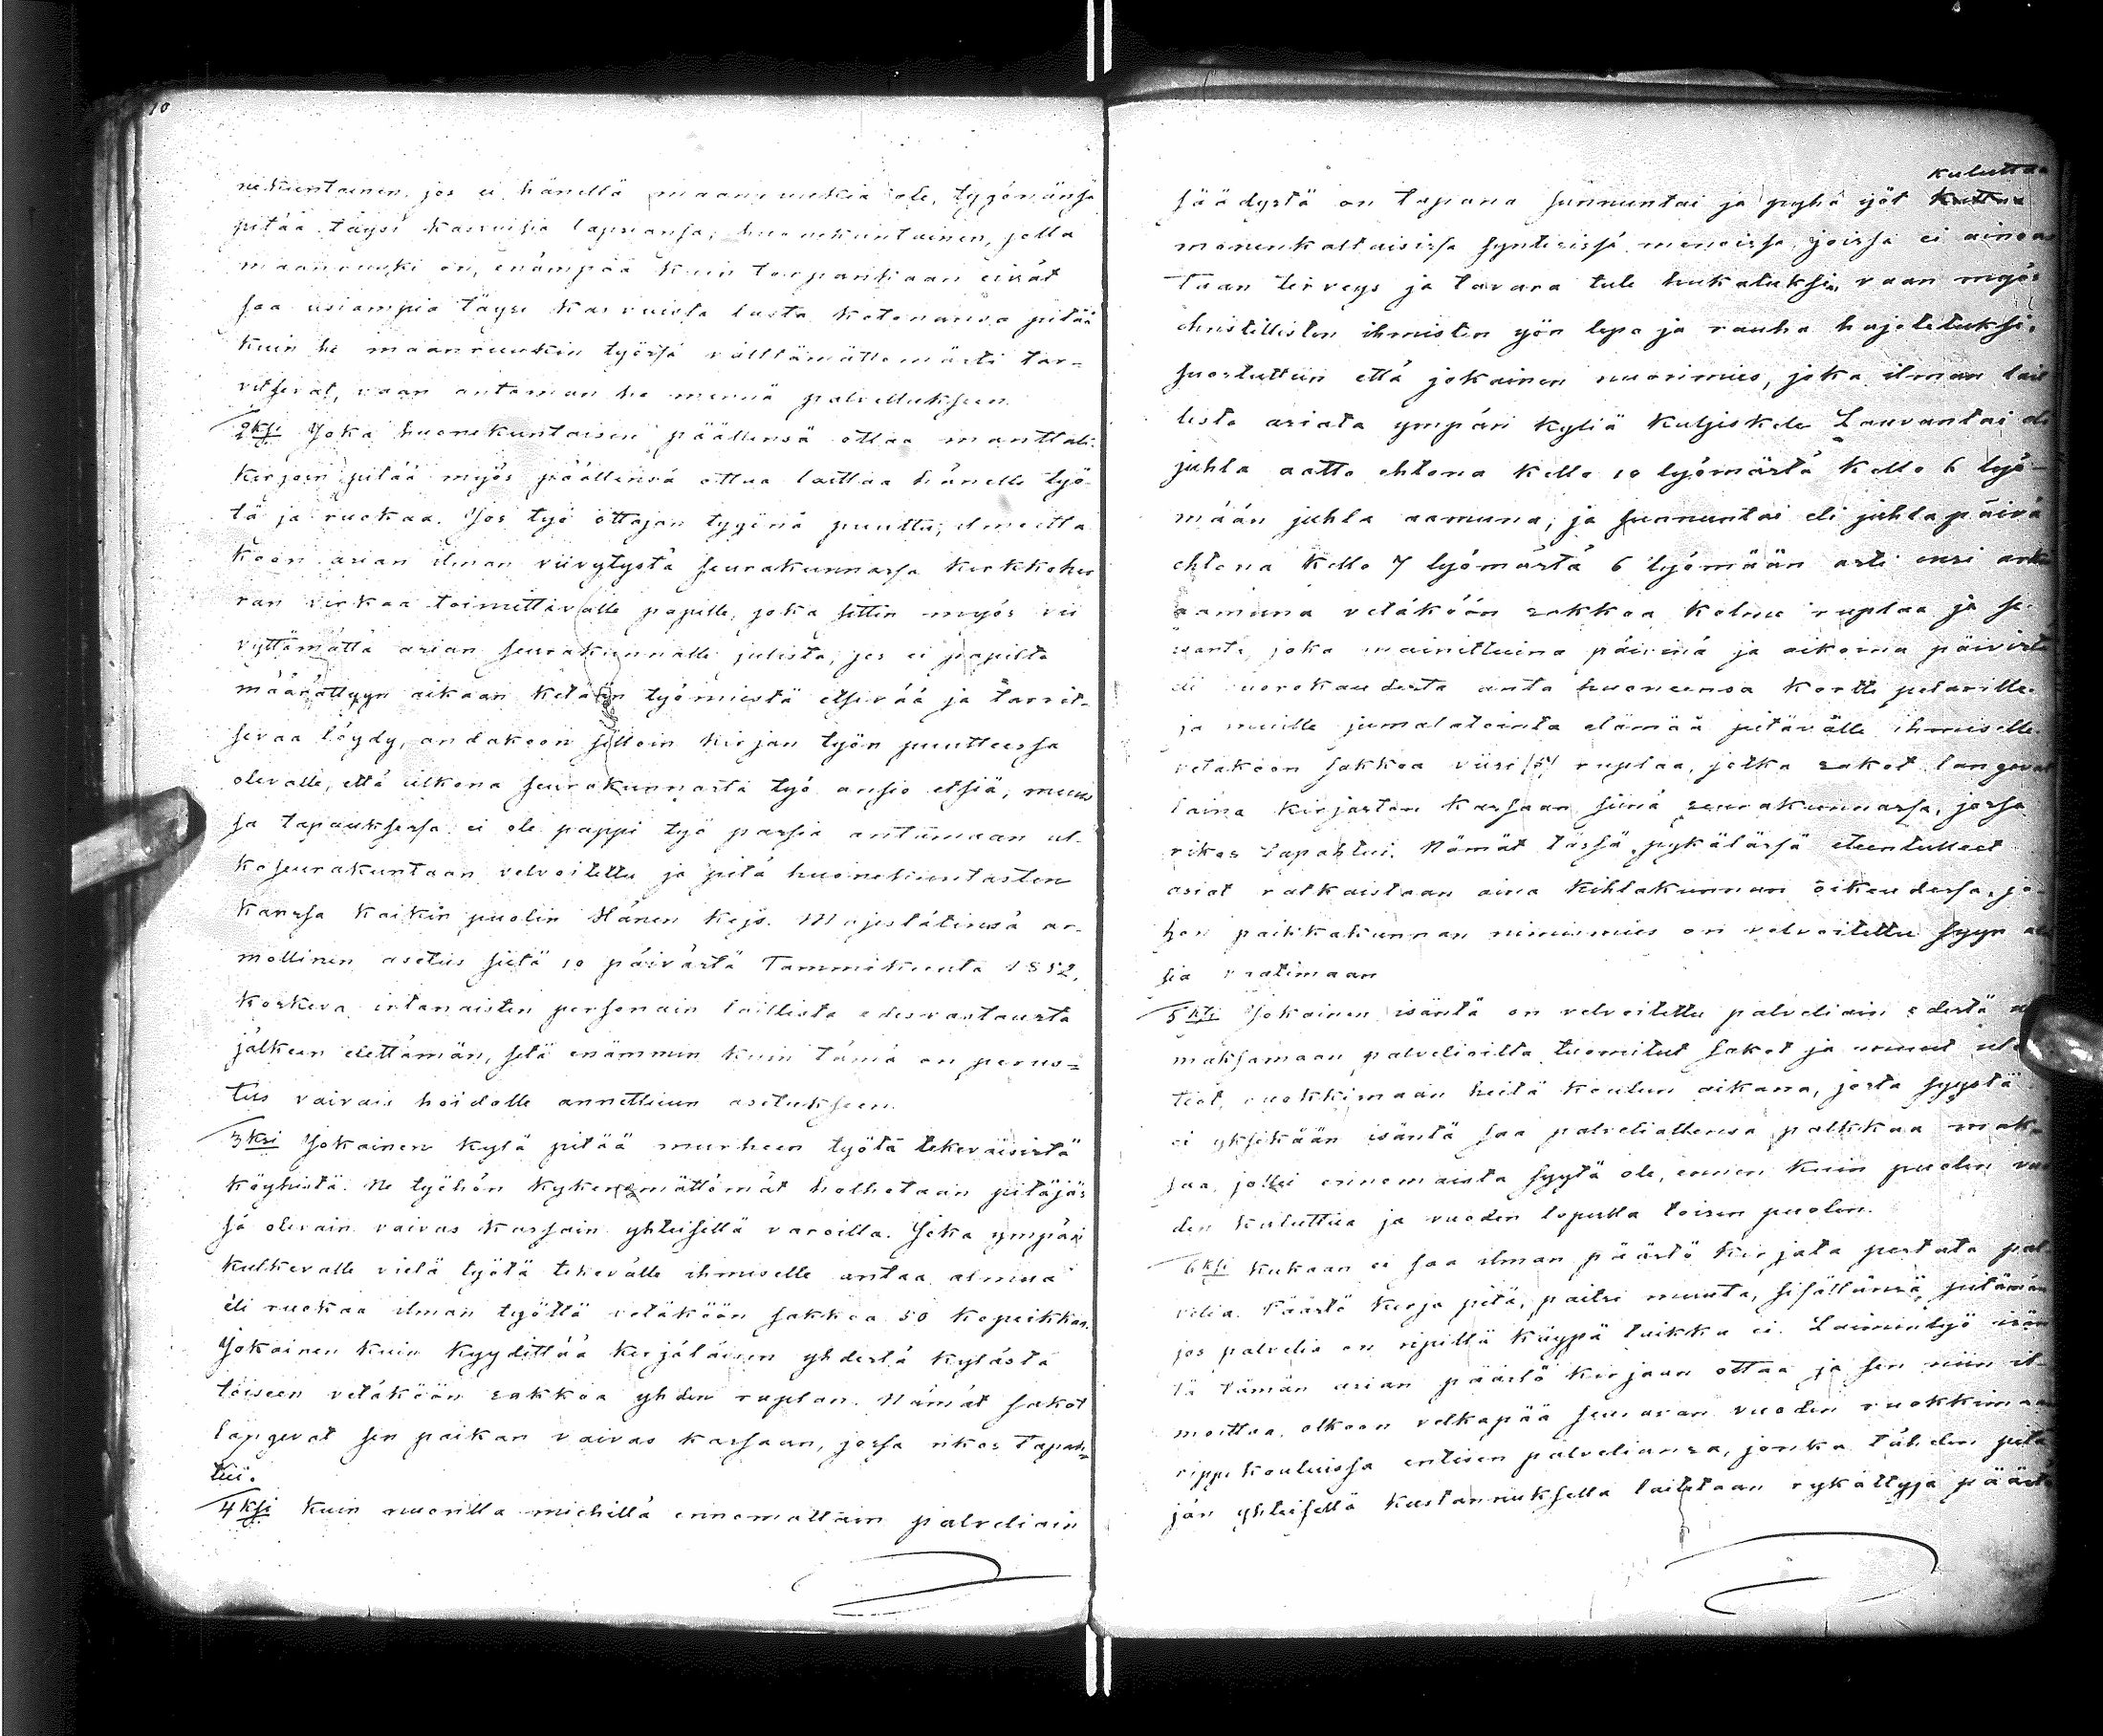 10
nekuntainen, jos ei hänellä maanruukia ole, tygönänsä
pitää täysi kasvuisia lapsiansa; huonekuntainen, jolla
maanruuki on, enämpää kuin torpankiaan eivät
saa usiampia täysi kasvuista lasta kotonansa pitää
kuin he maanruukin työssä välttämättömästi tar-
vitsevat, vaan antaman he mennä palvelukseen.
2ksi Joka huonekuntaisen päällensä ottaa manttali-
kirjoon pitää myös päällensä ottaa laittaa hänelle työ-
tä ja ruokaa. Jos työ ottajan tygönä puuttu; ilmoitta
koon asian ilman viivytystä seurakunnassa kirkkoher
ran virkaa toimittavalle papille, joka sittin myös vii
vyttämättä asian seurakunnalle julista; jos ei papilta
määrättyyn aikaan ketään työmiestä etsivää ja tarvit-
sevaa löydy, andakoon silloin kirjan työn puutteessa
olevalle, että ulkona seurakunnasta työ ansio etsiä; muus
sa tapauksessa ei ole pappi työ passia antamaan ul-
koseurakuntaan velvoitettu ja pitä huonekuntasten
kanssa kaikin puolin Hänen Kejs. Majestätinsä ar-
mollinen asetus siitä 10 päivästä Tammikuuta 1852,
koskeva irtanaisten personain laillista edesvastausta
jälkeen elettämän, sitä enämmin kuin tämä on perus=
tus vaivais hoidolle annettuun asetukseen.
3ksi Jokainen kylä pitää murheen työtä tekeväisistä
köyhistä. Ne työhön kykenemättömät holhotaan pitäjäs
sä olevain vaivas kassain yhteisillä varoilla. Joka ympäri
kulkevalle vielä työtä tekevälle ihmiselle antaa almua
eli ruokaa ilman työttä vetäköön sakkoa 50 kopeikkaa.
Jokainen kuin kyydittää kerjäläisen yhdestä kylästä
toiseen vetäköön sakkoa yhden ruplan. Nämät sakot
langevat sen paikan vaivas kassaan, jossa rikos tapah=
tui.
4ksi Kuin nuorilla miehillä ennemattain palveliain
kuluttaa
säädystä on tapana sunnuntai ja pyhä yöt
monenkaltaisissa syntisissä menoissa, joissa ei ainoas
taan terveys ja tavara tule hukatuksi, vaan myös
christillisten ihmisten yön lepo ja rauha hajotetuksi.
suostuttiin että jokainen nuorimies, joka ilman lail
lista asiata ympäri kyliä kuljiskele Lauvantai eli
juhla aatto ehtona kello 10 lyömästä kello 6 lyö-
mään juhla aamuna, ja sunnuntai eli juhlapäivä
ehtona kello 7 lyömästä 6 lyömään asti ensi arki
aamuna vetäköön sakkoa kolme ruplaa ja se
isäntä, joka mainittuina päivinä ja aikoina päivistä
eli vuorokaudesta anta huoneensa kortti pelarille
ja muille jumalatointa elämää pitävälle ihmiselle
vetäköön sakkoa viisi (5) ruplaa, jotka sakot langevat
laina kirjaston kassaan siinä seurakunnassa, jossa
rikos tapahtui. Nämät tässä pykälässä eteentulleet
asiat ratkaistaan aina kihlakunnan oikeudessa, jo-
hon paikkakunnan nimismies on velvoitettu syyn al
sia vaatimaan
5ksi Jokainen isäntä on velvoitettu palveliain edestä
maksamaan palvelioilta tuomitut sakot ja muut
teot, ruokkimaan heitä koulun aikana, josta syystä
ei yksikään isäntä saa palveliallensa palkkaa mak-
saa, jollei erinomaista syytä ole, ennen kuin puolen vuo
den kuluttua ja vuoden lopulla toisen puolen.
6ksi Kukaan ei saa ilman päästö kirjata pestata pal
velia. Päästö kirja pitä, paitsi muuta, sisällänsä pitämän
jos palvelia on ripillä käypä taikka ei. Laiminlyö isän
tä tämän asian päästö kirjaan ottaa ja sen niin il-
moittaa, olkoon velkapää seuravan vuoden ruokkimaan
rippikouluissa entisen palveliansa, jonka tähden pitä
jän yhteisellä kustannuksella laitetaan rykättyjä päästö